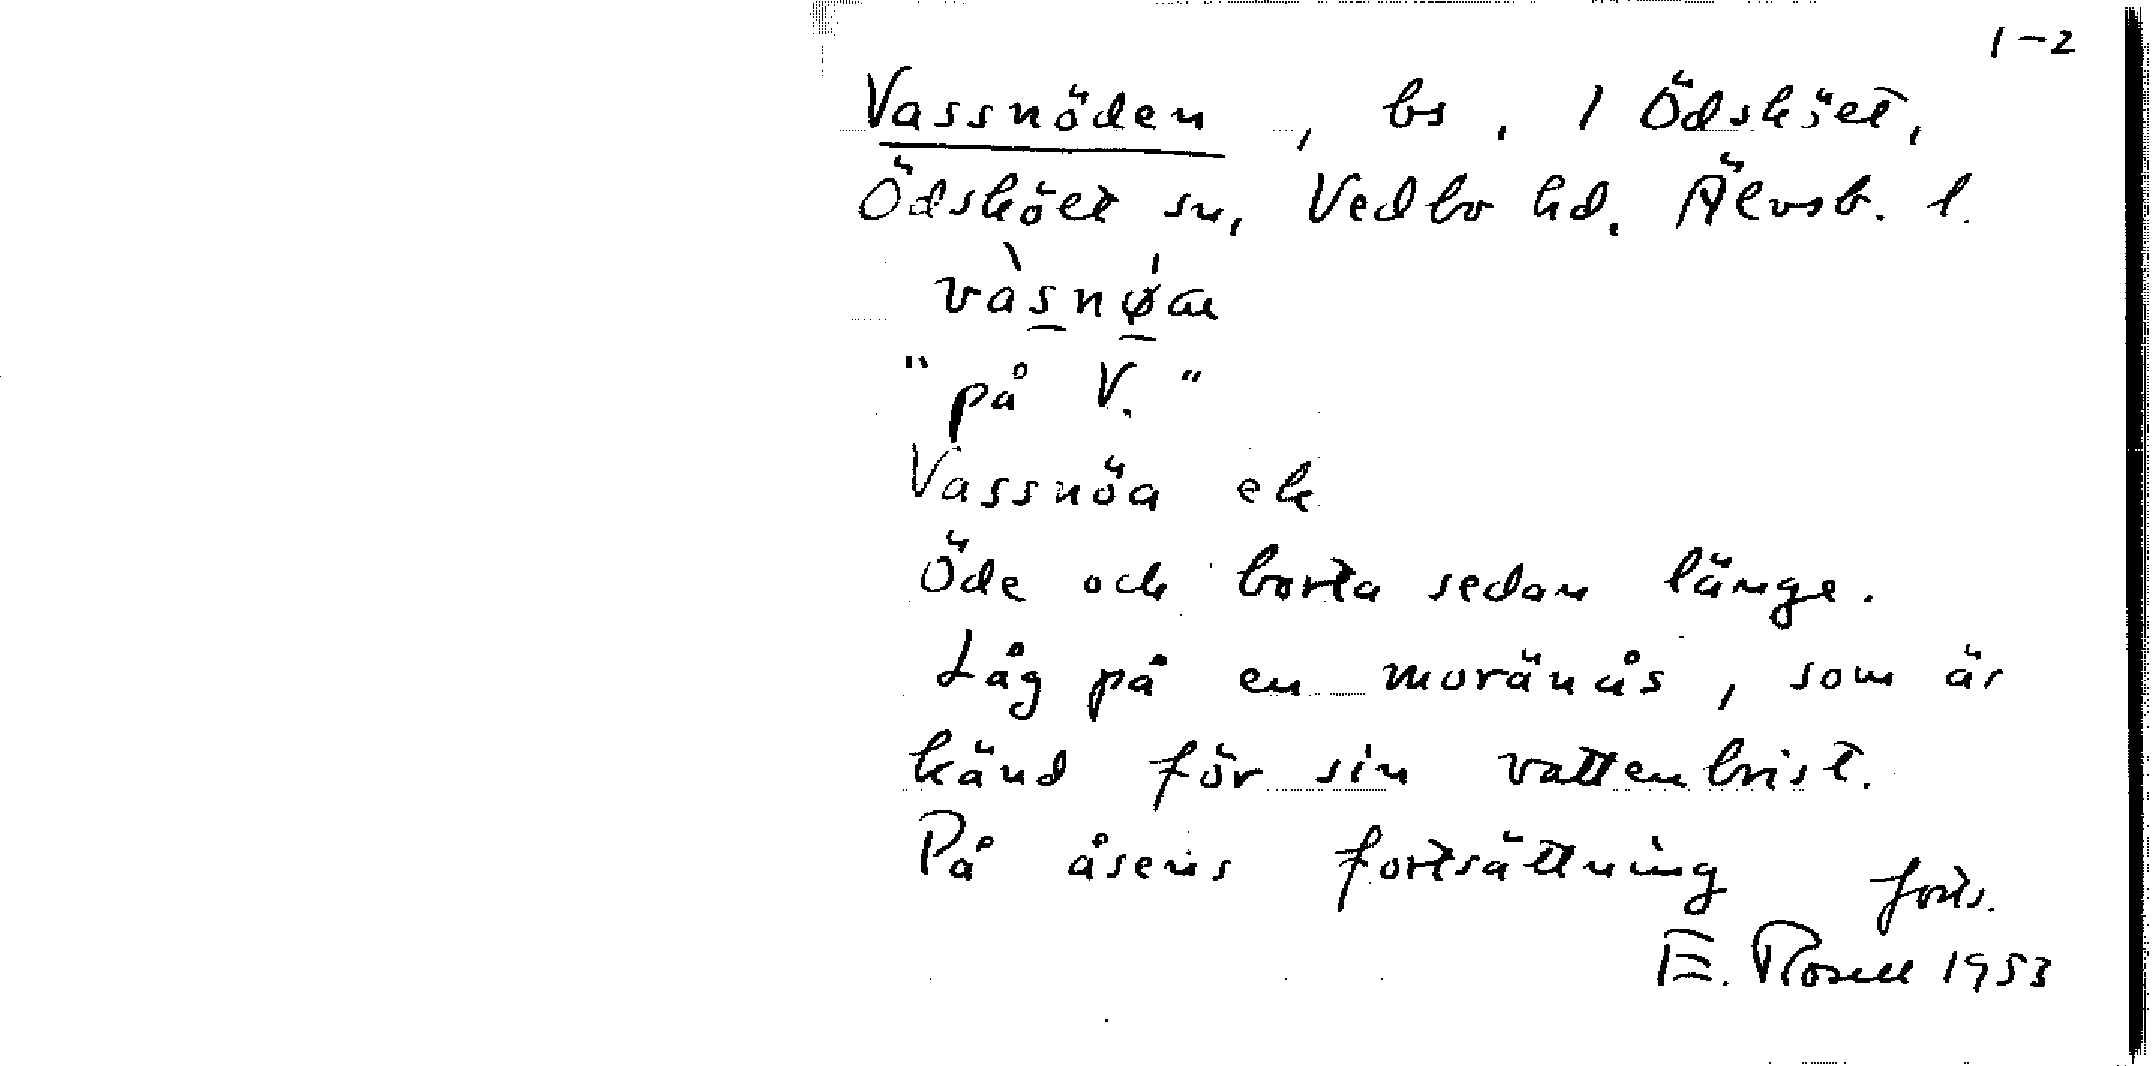 1-2
Vassnöden, bs. 1 Ödsköet,
Ödsköet sn, Vedbo hd. Älvsb. l.
vàsnøa
"på V."
Vassnöa ek
Öde och borta sedan länge.
Låg på en moränås, som är
känd för sin vattenbrist.
På åsens fortsättning forts.
E. Rosell 1953